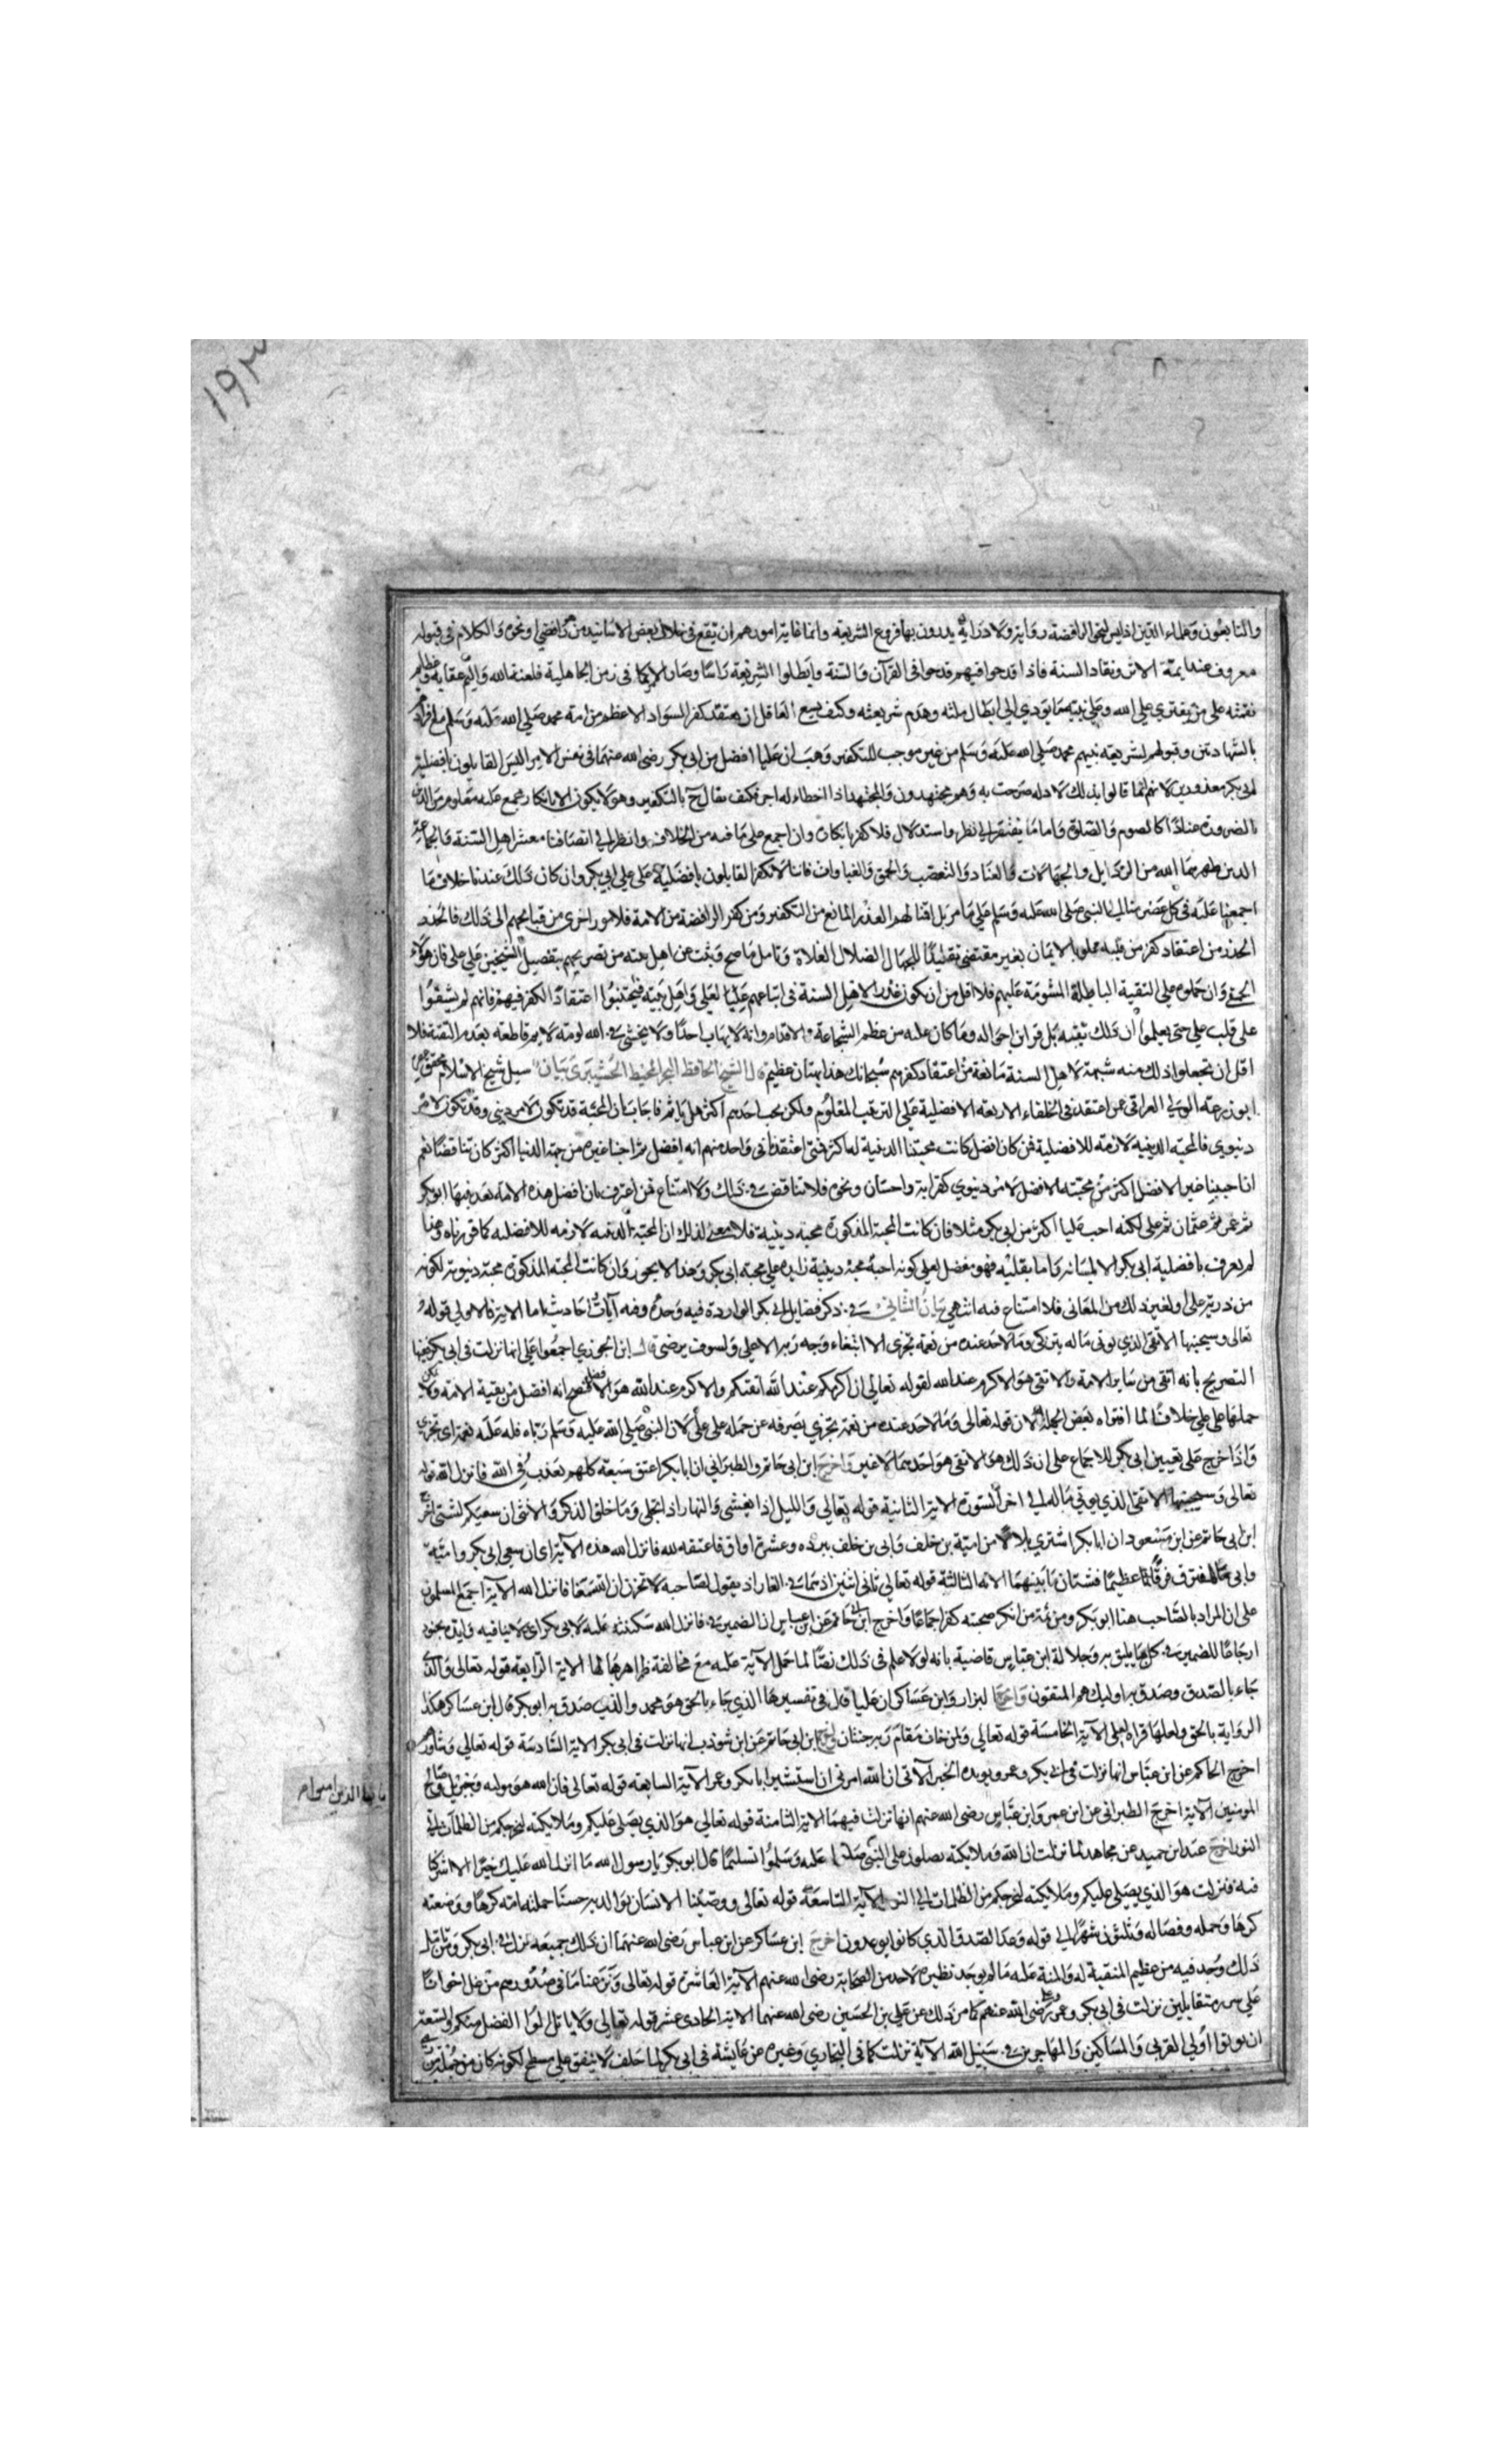 ١٩٣
والتابعون وعلماء الدين اذ ليس لنحو الرافضة رواية ولا دراية يدرون بها فروع الشريعة وانما غاية امورهم ان يقع في خلال بعض الاسانيد من هو رافضي او نحوه والكلام في قبوله
معروف عند ائمة الاثر ونقاد السنة فاذا قدحوا فيهم قدحوا في القرآن والسنة وابطلوا الشريعة راسا وصار الامر كما في زمن الجاهلية فلعنة الله واليم عقابه وعظائم
نقمته على من يفتري على الله وعلى نبيه ما يودي الى ابطال ملته وهدم شريعته وكيف يسع العاقل ان يعتقد كفر السواد الاعظم من امة محمد صلى الله عليه وسلم مع اقرارهم
بالشهادتين وقبولهم لشريعة نبيهم محمد صلى الله عليه وسلم من غير موجب للتكفير وهب ان عليا افضل من ابي بكر رضي الله عنهما في نفس الامر اليس القايلون بافضلية
ابي بكر معذورين لانهم انما قالوا بذلك لادلة صرحت به وهم مجتهدون والمجتهد اذا اخطا له اجر فكيف يقال ح بالتكفير وهو لا يكون الا بانكار مجمع عليه معلوم من الدين
بالضرورة عنادا كالصوم والصلوة واما ما يفتقر الى نظر واستدلال فلا كفر بانكاره وان اجمع على ما فيه من الخلاف وانظر الى انصافنا معشر اهل السنة والجماعة
الذين طهرهم الله من الرذايل والجهالات والعناد والتعصب والحمق والغباوات فاننا لا نكفر القايلون بافضلية علي على ابي بكر وان كان ذلك عندنا خلاف ما
اجمعنا عليه في كل عصر منا الى النبي صلى الله عليه وسلم على ما مر بل اقنا لهم العذر المانع من التكفير ومن كفر الرافضة من الامة فلامور اخرى من قبايحهم الى ذلك فالحذر
الحذر من اعتقاد كفر من قلبه مملو بالايمان بغير مقتضى تقليدا للجهال الضلال الغلاة وتامل ما صح وثبت عن اهل بيته من تصريحهم بتفضيل الشيخين على علي فان هؤلاء
الحمقى وان حملوه على التقية الباطلة المشومة عليهم فلا اقل من ان يكون عذرا لاهل السنة في اتباعهم عليا لعلي واهل بيته فليجتنبوا اعتقاد الكفر فيهم فانهم لم يشقوا
على قلب علي حتى يعلموا ان ذلك تقية بل قراين احواله وما كان عليه من عظم الشجاعة والاقدام وانه لا يهاب احدا ولا يخشى في الله لومة لايم قاطعة بعدم التقية فلا
اقل ان يجعلوا ذلك منه شبهة لاهل السنة مانعة من اعتقاد كفرهم سبحانك هذا بهتان عظيم قال الشيخ الحافظ البحر المحيط سيل شيخ الاسلام محقق عصره
ابو زرعة الولي العراقي عن من اعتقد في الخلفاء الاربعة الافضلية على الترتيب المعلوم ولكن يحب احدهم اكثر هل ياثم فاجاب بان المحبة قد تكون لامر ديني وقد تكون لامر
دنيوي فالمحبة الدينية لازمة للافضلية فمن كان افضل كانت محبتنا الدينية له اكثر فمتى اعتقدنا في واحد منهم انه افضل ثم احببنا غيره من جهة الدين اكثر كان تناقضا نعم
ان احببنا غير الافضل اكثر من محبته الافضل لامر دنيوي كقرابة واحسان ونحوه فلا تناقض في ذلك ولا امتناع فمن اعترف بان افضل هذه الامة بعد نبيها ابو بكر
ثم عمر ثم عثمان ثم علي لكنه احب عليا اكثر من ابي بكر مثلا فان كانت المحبة المذكورة محبة دينية فلا معنى لذلك ان المحبة الدينية لازمة للافضلية كما قررناه وهذا
لم يعرف بافضلية ابي بكر الا بلسانه واما بقلبه فهو مفضل لعلي كونه احبه محبة دينية زايدة على محبة ابي بكر وهذا لا يجوز وان كانت المحبة المذكورة محبة دنيوية لكونه
من ذرية علي او لغير ذلك من المعاني فلا امتناع فيه انتهى جان الثاني في ذكر فضايل ابي بكر الواردة فيه وحده وفيه آيات احاديث اما الاية فالاولى قوله
تعالى وسيجنبها الاتقى الذي يوتي ماله يتزكى وما لاحد عنده من نعمة تجزى الا ابتغاء وجه ربه الاعلى ولسوف يرضى قال ابن الجوزي اجمعوا على انها نزلت في ابي بكر ففيها
التصريح بانه اتقى من ساير الامة والاتقى هو الاكرم عند الله لقوله تعالى ان اكرمكم عند الله اتقيكم والاكرم عند الله هو الافضل فصح انه افضل من بقية الامة ولا يمكن
حملها على علي خلافا لما افتراه بعض الجهلة لان قوله تعالى وما لاحد عنده من نعمة تجزى يصرفه عن حمله على علي لان النبي صلى الله عليه وسلم رباه فله عليه نعمة اي تجزى
واذا خرج علي تعيين ابي بكر للاجماع على ان ذلك هو الاتقى هو احدهما لا غير واخرج ابن ابي حاتم والطبراني ان ابا بكر اعتق سبعة كلهم يعذب في الله فانزل الله قوله
تعالى وسيجنبها الاتقى الذي يوتي ماله الى اخر السورة الاية الثانية قوله تعالى والليل اذا يغشى والنهار اذا تجلى وما خلق الذكر والانثى ان سعيكم لشتى اخرج
ابن ابي حاتم عن ابن مسعود ان ابا بكر اشترى بلالا من امية بن خلف وابي بن خلف ببرده وعشرة اواق فاعتقه لله فانزل الله هذه الآية اي ان سعي ابي بكر وامية
وابي لمفترق فرقانا عظيما فشتان ما بينهما الاية الثالثة قوله تعالى ثاني اثنين اذ هما في الغار اذ يقول لصاحبه لا تحزن ان الله معنا فانزل الله الاية اجمع المسلمون
على ان المراد بالصاحب هنا ابو بكر ومن ثم من انكر صحبته كفر اجماعا واخرج ابن ابي حاتم عن ابن عباس ان الضمير في فانزل الله سكينته عليه لابي بكر اي ولا ينافيه وايده بجنود
ارجاعا للضمير في كل ما يليق به وجلالة ابن عباس قاضية بانه لولا علم في ذلك نصا لما حمل الآية عليه مع مخالفة ظاهرها لها الاية الرابعة قوله تعالى والذي
جاء بالصدق وصدق به اوليك هم المتقون واخرج البزار وابن عساكر ان عليا قال في تفسيرها الذي جاء بالحق هو محمد والذي صدق به ابو بكر قال ابن عساكر هكذا
الرواية بالحق ولعلها قراءة لعلي الآية الخامسة قوله تعالى ولمن خاف مقام ربه جنتان اخرج ابن ابي حاتم عن ابن شوذب انها نزلت في ابي بكر الاية السادسة قوله تعالى وشاورهم
اخرج الحاكم عن ابن عباس انها نزلت في ابي بكر وعمر ويويده الخبر الآتي ان الله امرني ان استشير ابا بكر وعمر الآية السابعة قوله تعالى فان الله هو موليه وجبريل وصالح
المومنين الآية اخرج الطبراني عن ابن عمر وابن عباس رضي الله عنهم انها نزلت فيهما الاية الثامنة قوله تعالى هو الذي يصلي عليكم وملايكته ليخرجكم من الظلمات الى
النور اخرج عبد ابن حميد عن مجاهد لما نزلت ان الله وملايكته يصلون على النبي عليه وسلموا تسليما قال ابو بكر يا رسول الله ما انزل الله عليك خيرا الا اشركنا
فيه فنزلت هو الذي يصلي عليكم وملايكته ليخرجكم من الظلمات الى النور الآية التاسعة قوله تعالى ووصينا الانسان بوالديه حسنا حملته امه كرها ووضعته
كرها وحمله وفصاله وثلثون شهرا الى قوله وعد الصدق الذي كانوا يوعدون اخرج ابن عساكر عن ابن عباس رضي الله عنهما ان ذلك جميعه نزل في ابي بكر ومن تامل
ذلك وجد فيه من عظيم المنقبة له والمنة عليه ما لم يوجد نظيره لاحد من الصحابة رضي الله عنهم الآية العاشرة قوله تعالى ونزعنا ما في صدورهم من غل اخوانا
على سرر متقابلين نزلت في ابي بكر وعمر رضي الله عنهم كما مر ذلك عن علي بن الحسين رضي الله عنهما الاية الحادي عشر قوله تعالى ولا ياتل اولوا الفضل منكم والسعة
ان يوتوا اولي القربى والمساكين والمهاجرين في سبيل الله الآية نزلت كما في البخاري وغيره عن عايشة في ابي بكر لما حلف لا ينفق على مسطح لكونه كان من جملة من